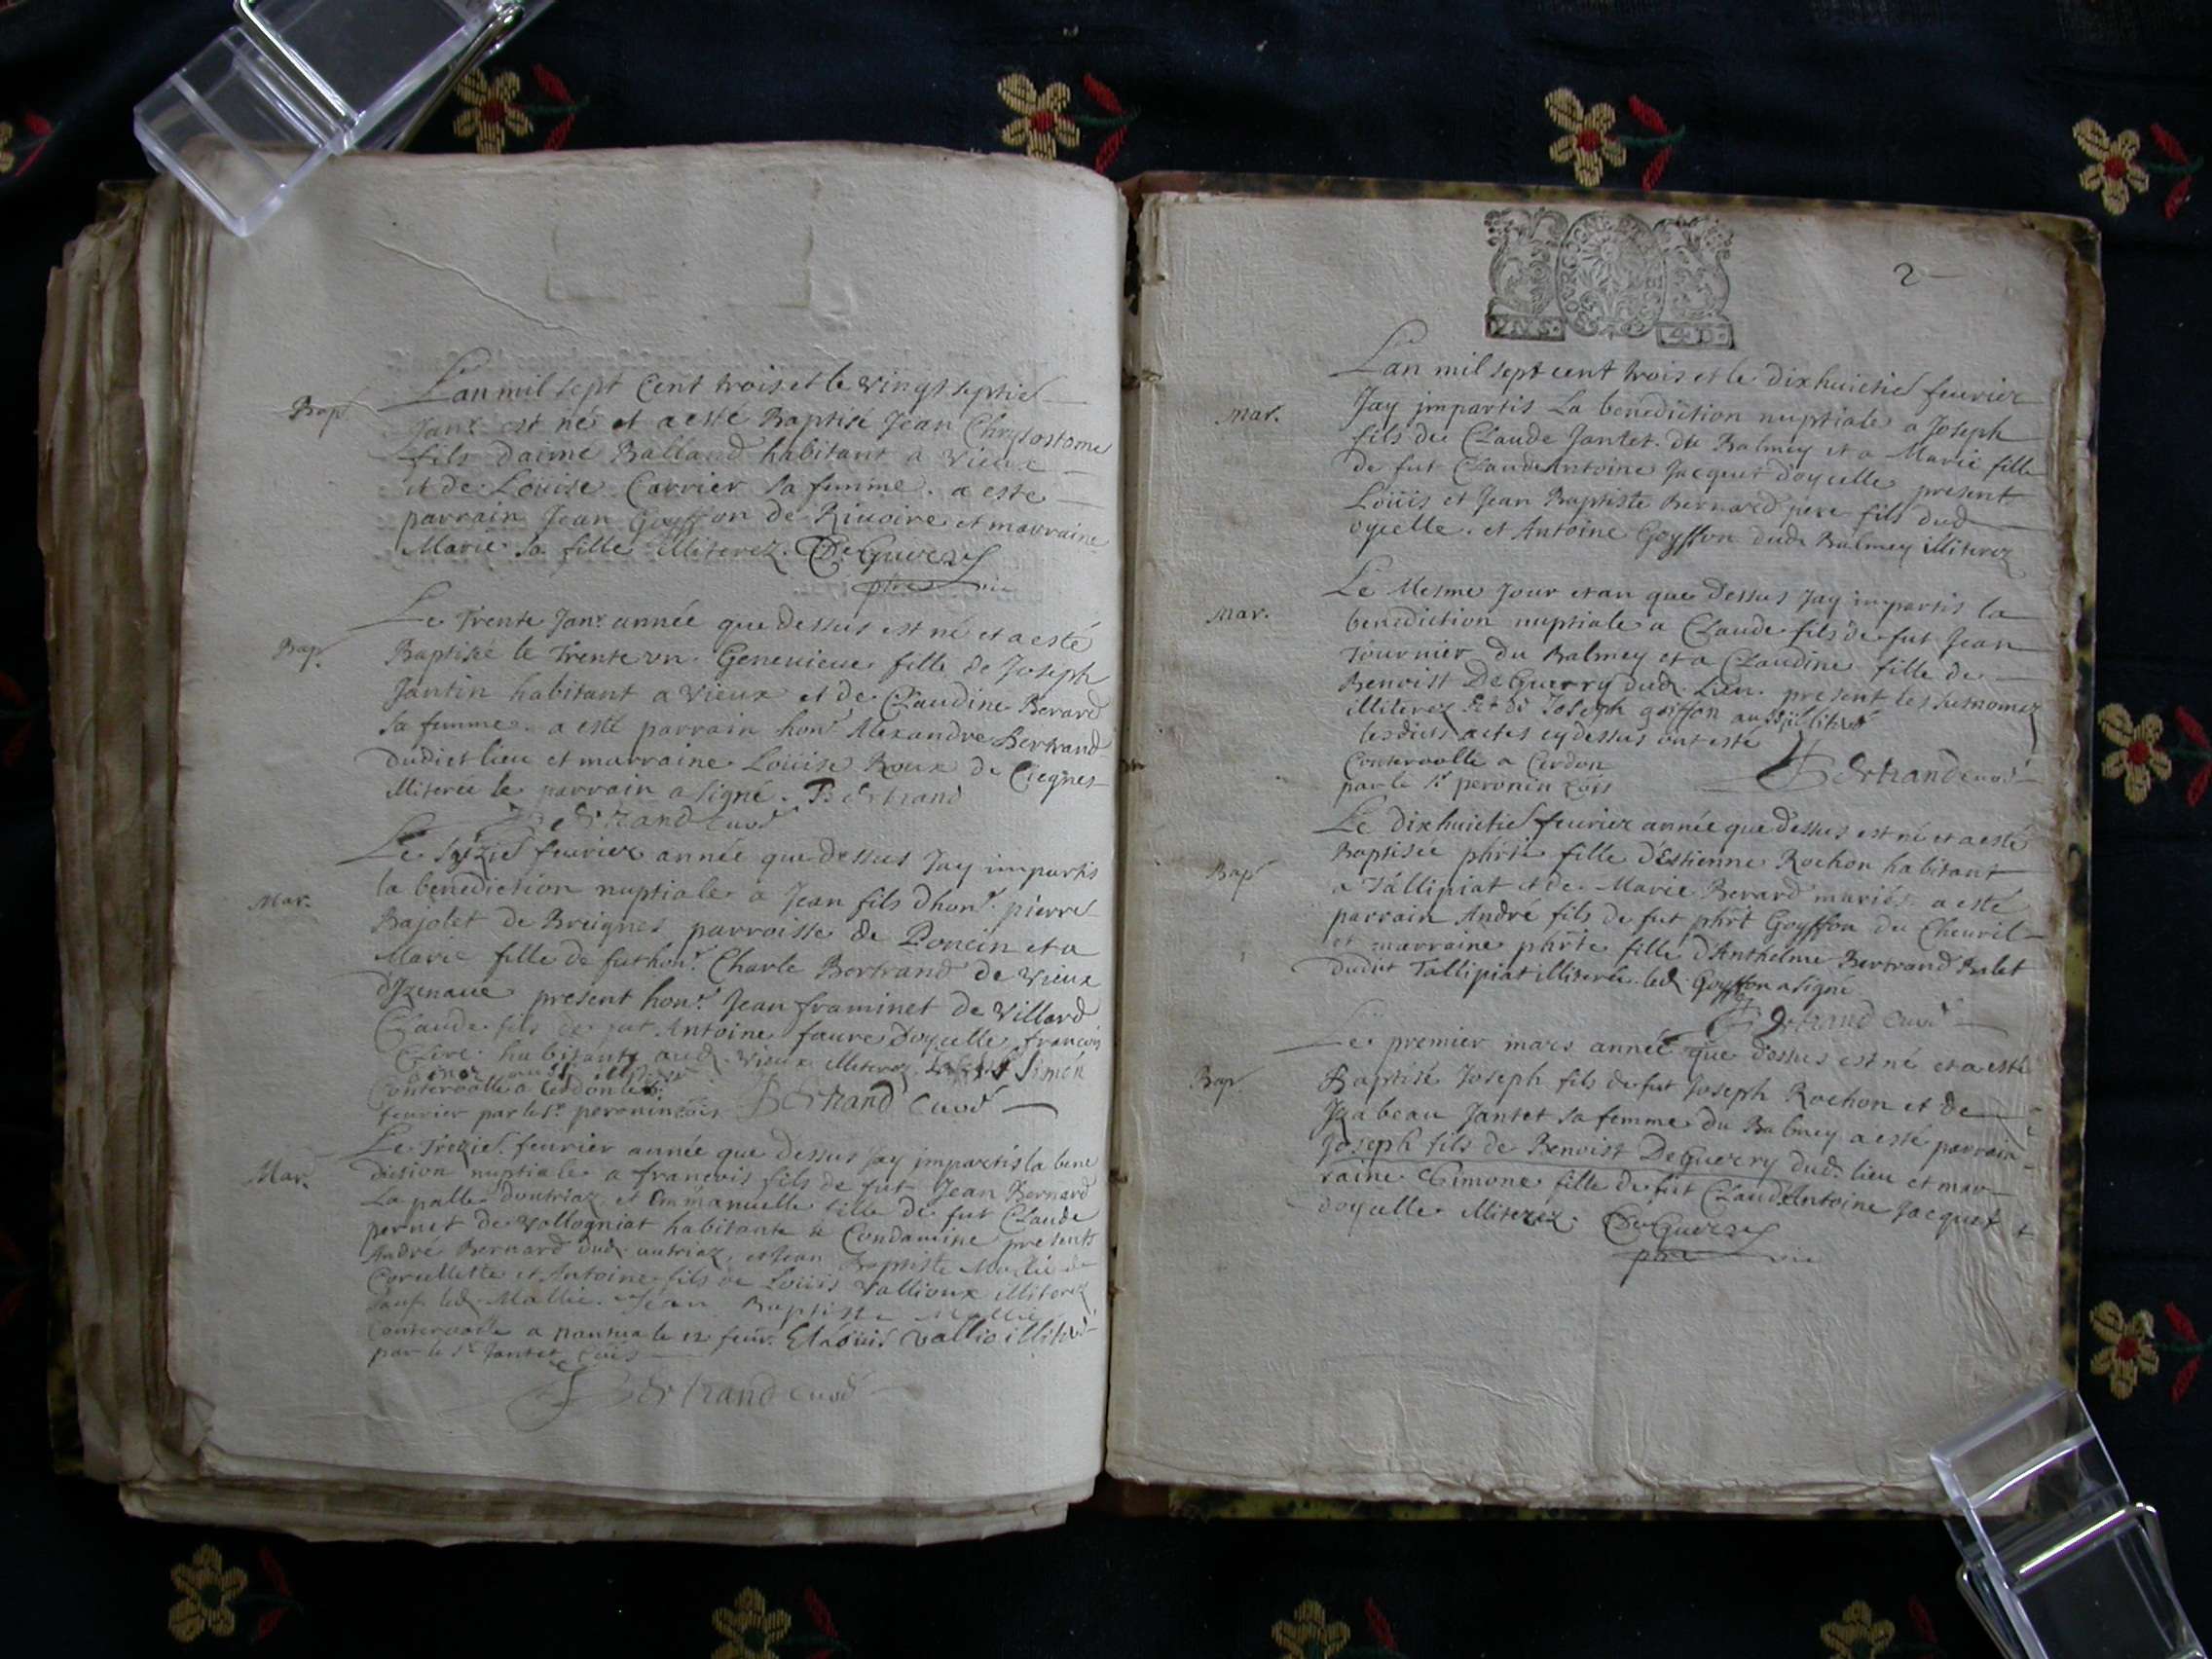 Bap.
Lan mil sept Cent trois et le vingt septie
Janr. est né et a esté Baptisé Jean Chrysostome
fils daimé Balland habitant a vieux
et de Louise Carrier sa femme. a esté
parrain Jean Goyffon de Rivoire et marraine
Marie sa fille illiterez. DeGuerry
ptre vic
Bap.
Le Trente Janr. année que dessus est né et a esté
Baptisée le Trente vn. Genevieue fille de Joseph
Jantin habitant a vieux et de Claudine Berard
sa femme. a esté parrain honr. Alexandre Bertrand
dudict lieu et marraine Loüise Roux de Ciegnes
illiterée le parrain a signé. Bertrand
Bertrand curé
Mar.
Le seizie feurier année que dessus Jay impartis
la benediction nuptiale a Jean fils dhonr. pierre
Bajolet de Breignes parroisse de Poncin et a
Marie fille de fut honr. Charle Bertrand de vieux
d'Izenaue present honr. Jean framinet de Villard
Claude fils de fut Antoine faure doycelle françois
Clerc habitants aud. vieux illiterez Simon
Conterollé a Cerdon le
feurier par le Sr. peronin Cõis Bertrand curé
Mar.
Le Trezie. feurier année que dessus Jay impartis la bene
diction nuptiale a francois fils de fut Jean Bernard
La palle doutriaz, et Emmanuelle fille de fut Claude
pernet de vollogniat habitante a Condamine presents
André Bernard dud. autriaz, et Jean Baptiste Mallie de
Corcellette et Antoine fils de Loüis vallioux illiterez
sauf led. Mallie. Jean Baptiste Mallie
Conterolle a nantua le 12 feur. Et Loüis vallio illiteré
par le Sr. Jantet Cõis
Bertrand curé
2
Mar.
Lan mil sept cent trois et le dixhuictie feurier
Jay impartis La benediction nuptiale a Joseph
fils de Claude Jantet du Balmey et a Marie fille
de fut Claude Antoine Jacquet d'oycelle present
Loüis et Jean Baptiste Bernard pere fils dud
oycelle. et Antoine Goyffon dud. Balmey illiterez
Mar.
Le Mesme Jour et an que dessus Jay impartis la
benediction nuptiale a Claude fils de fut Jean
Tournier du Balmey et a Claudine fille de
Benoist DeGuerry dud. Lieu. present les susnomez
illiterez Joseph goiffon aussy illiteré
lesdits actes cy dessus ont esté
Conterollé a Cerdon
par le Sr. peronin Cõis
Bertrand curé
Bap.
Le dixhuictie feurier année que dessus est né et a esté
Baptisée phrte fille d'Estienne Rochon habitant
a Tallipiat et de Marie Berard mariés. a esté
parrain André fils de fut phrt Goyffon du Cheuril
et marraine phrte fille d'Anthelme Bertrand Balet
dudit Tallipiat illiterée. led. Goyffon a signé.
Bertrand curé
Bap.
Le premier mars année que dessus est né et a esté
Baptisé Joseph fils de fut Joseph Rochon et de
Izabeau Jantet sa femme du Balmey a esté parrain
Joseph fils de Benoist DeGuerry dud. lieu et mar
raine Simone fille de fut Claude Antoine Jacquet
doycelle illiterez. DeGuerry
ptre vic